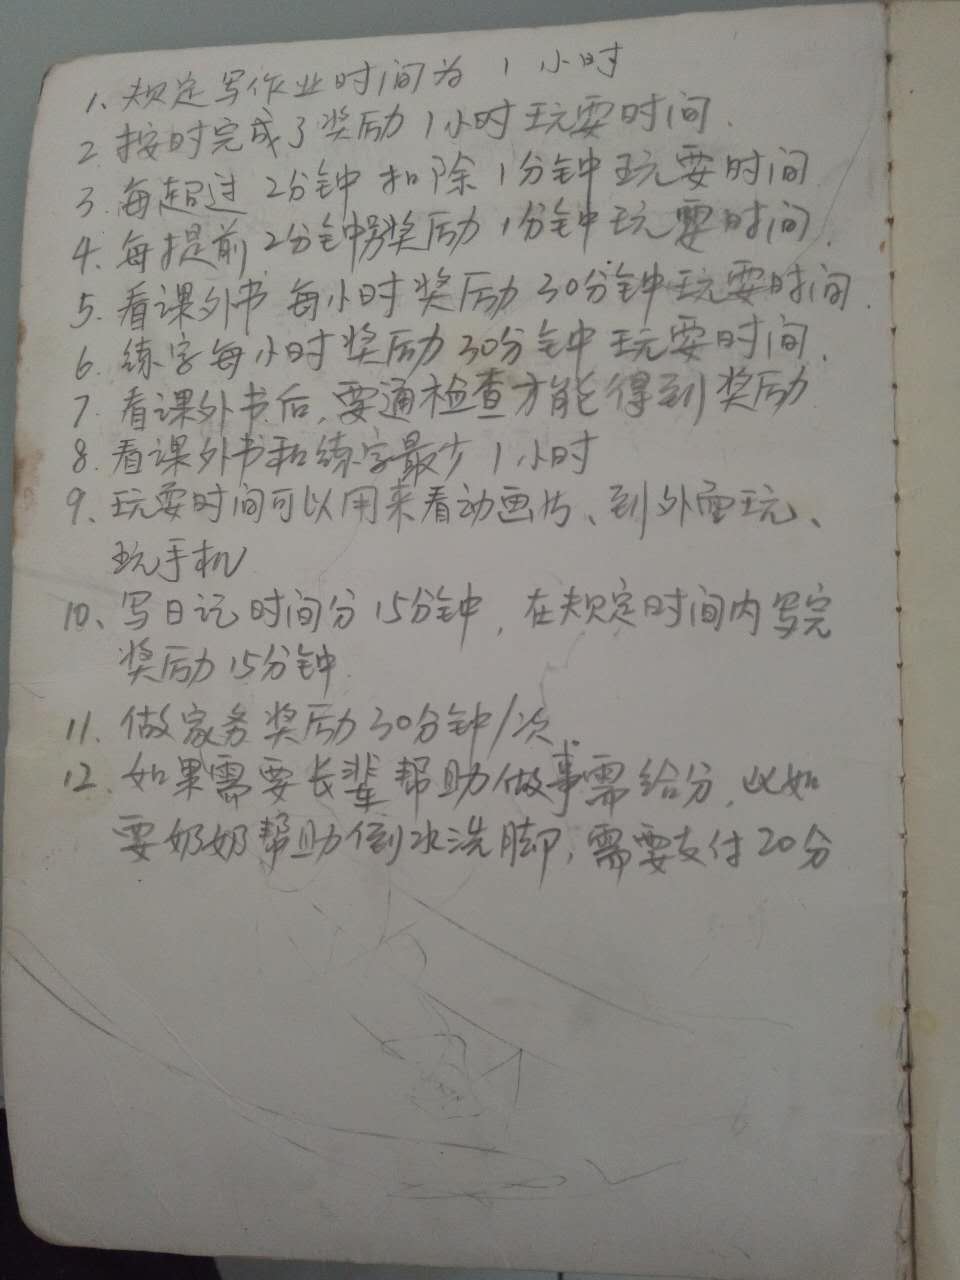 1、规定写作业时间为 1 小时
2、按时完成了奖励1小时玩耍时间.
3、每超过 2分钟 扣除1分钟玩耍时间
4、每提前2分钟奖励1分钟玩耍时间.
5、看课外书 每小时奖励30分钟玩耍时间.
6、练字每小时奖励30分钟玩耍时间.
7、看课外书后,要通检查才能得到奖励
8、看课外书和练字最少1小时
9、玩耍时间可以用来看动画片、到外面玩、
玩手机
10、写日记时间分15分钟,在规定时间内写完
奖励15分钟
11、做家务奖励30分钟/次.
12、如果需要长辈帮助做事需给分,比如
要奶奶帮助倒水洗脚,需要支付20分